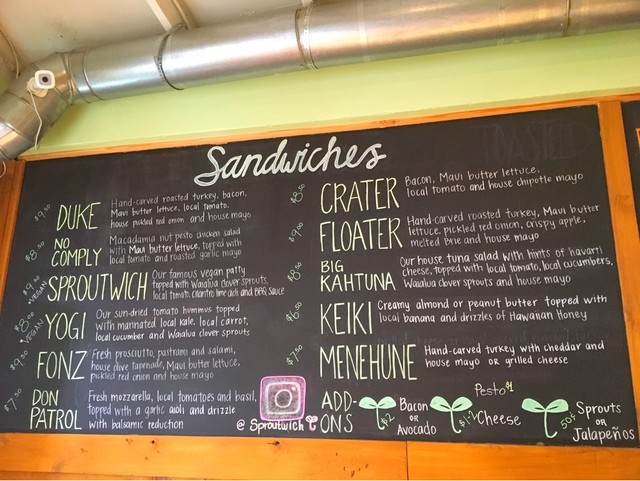 Sandwiches
$9.50 DUKE Hand-carved roasted turkey, bacon,
Maui butter lettuce, local tomato,
house pickled red onion and house mayo
NO COMPLY Macadamia nut pesto chicken salad
with Maui butter lettuce, topped with
local tomato and roasted garlic mayo
VEGAN SPROUTWICH Our famous vegan patty
topped with Waialua clover sprouts,
local tomato, cilantro lime aioli and BBQ sauce
VEGAN YOGI Our sun-dried tomato hummus topped
with marinated local kale, local carrot,
local cucumber and Waialua clover sprouts
FONZ Fresh prosciutto, pastrami and salami,
house olive tapenade, Maui butter lettuce,
pickled red onion and house mayo
DON PATROL Fresh mozzarella, local tomatoes and basil,
topped with a garlic aioli and drizzle
with balsamic reduction
@ Sproutwich
CRATER Bacon, Maui butter lettuce,
local tomato and house chipotle mayo
FLOATER Hand-carved roasted turkey, Maui butter
lettuce, pickled red onion, crispy apple,
melted brie and house mayo
BIG KAHTUNA Our house tuna salad with hints of havarti
cheese, topped with local tomato, local cucumbers,
Waialua clover sprouts and house mayo
KEIKI Creamy almond or peanut butter topped with
local banana and drizzles of Hawaiian Honey
MENEHUNE Hand-carved turkey with cheddar and
house mayo or grilled cheese
ADD-ONS
$2 Bacon
or
Avocado
Pesto $1
$1-2 Cheese
50¢ Sprouts
or
Jalapeños